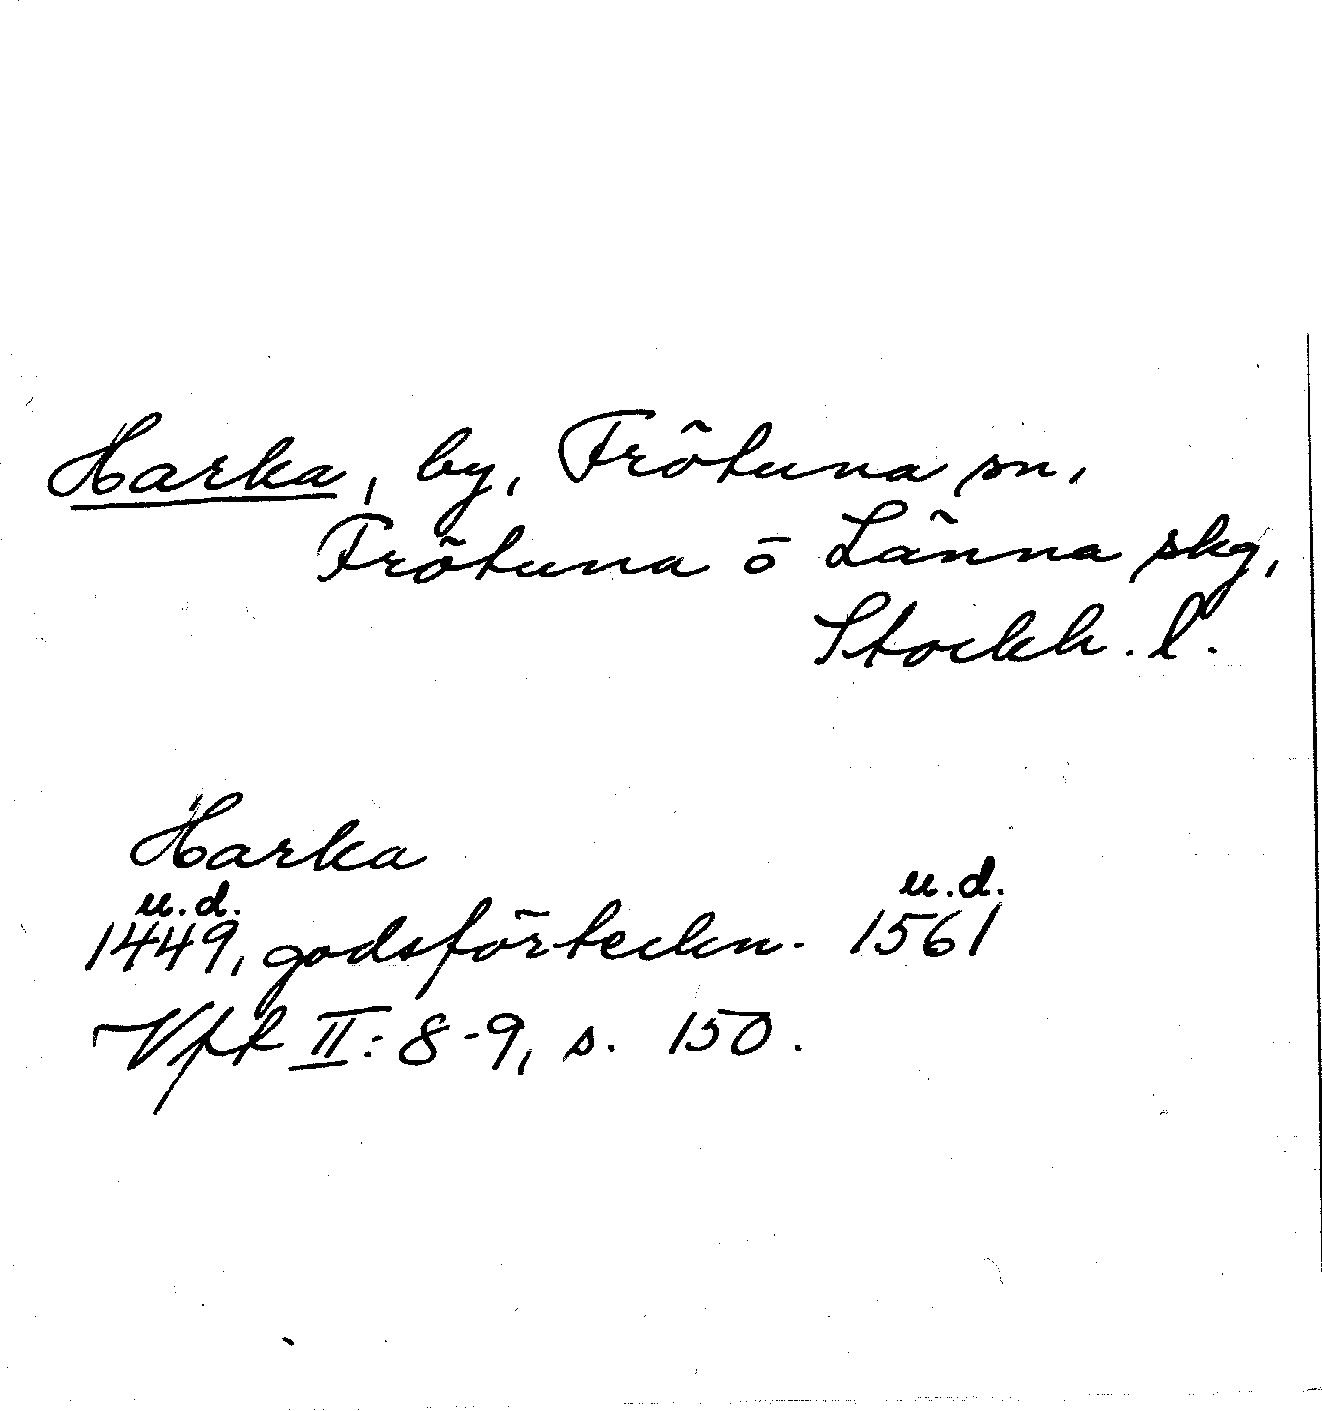 Harka, by, Frötuna sn,
Frötuna o Länna skg,
Stockh. l.
Harka
u.d. u.d.
1449, godsförteckn. 1561
Vft II: 8-9, s. 150.